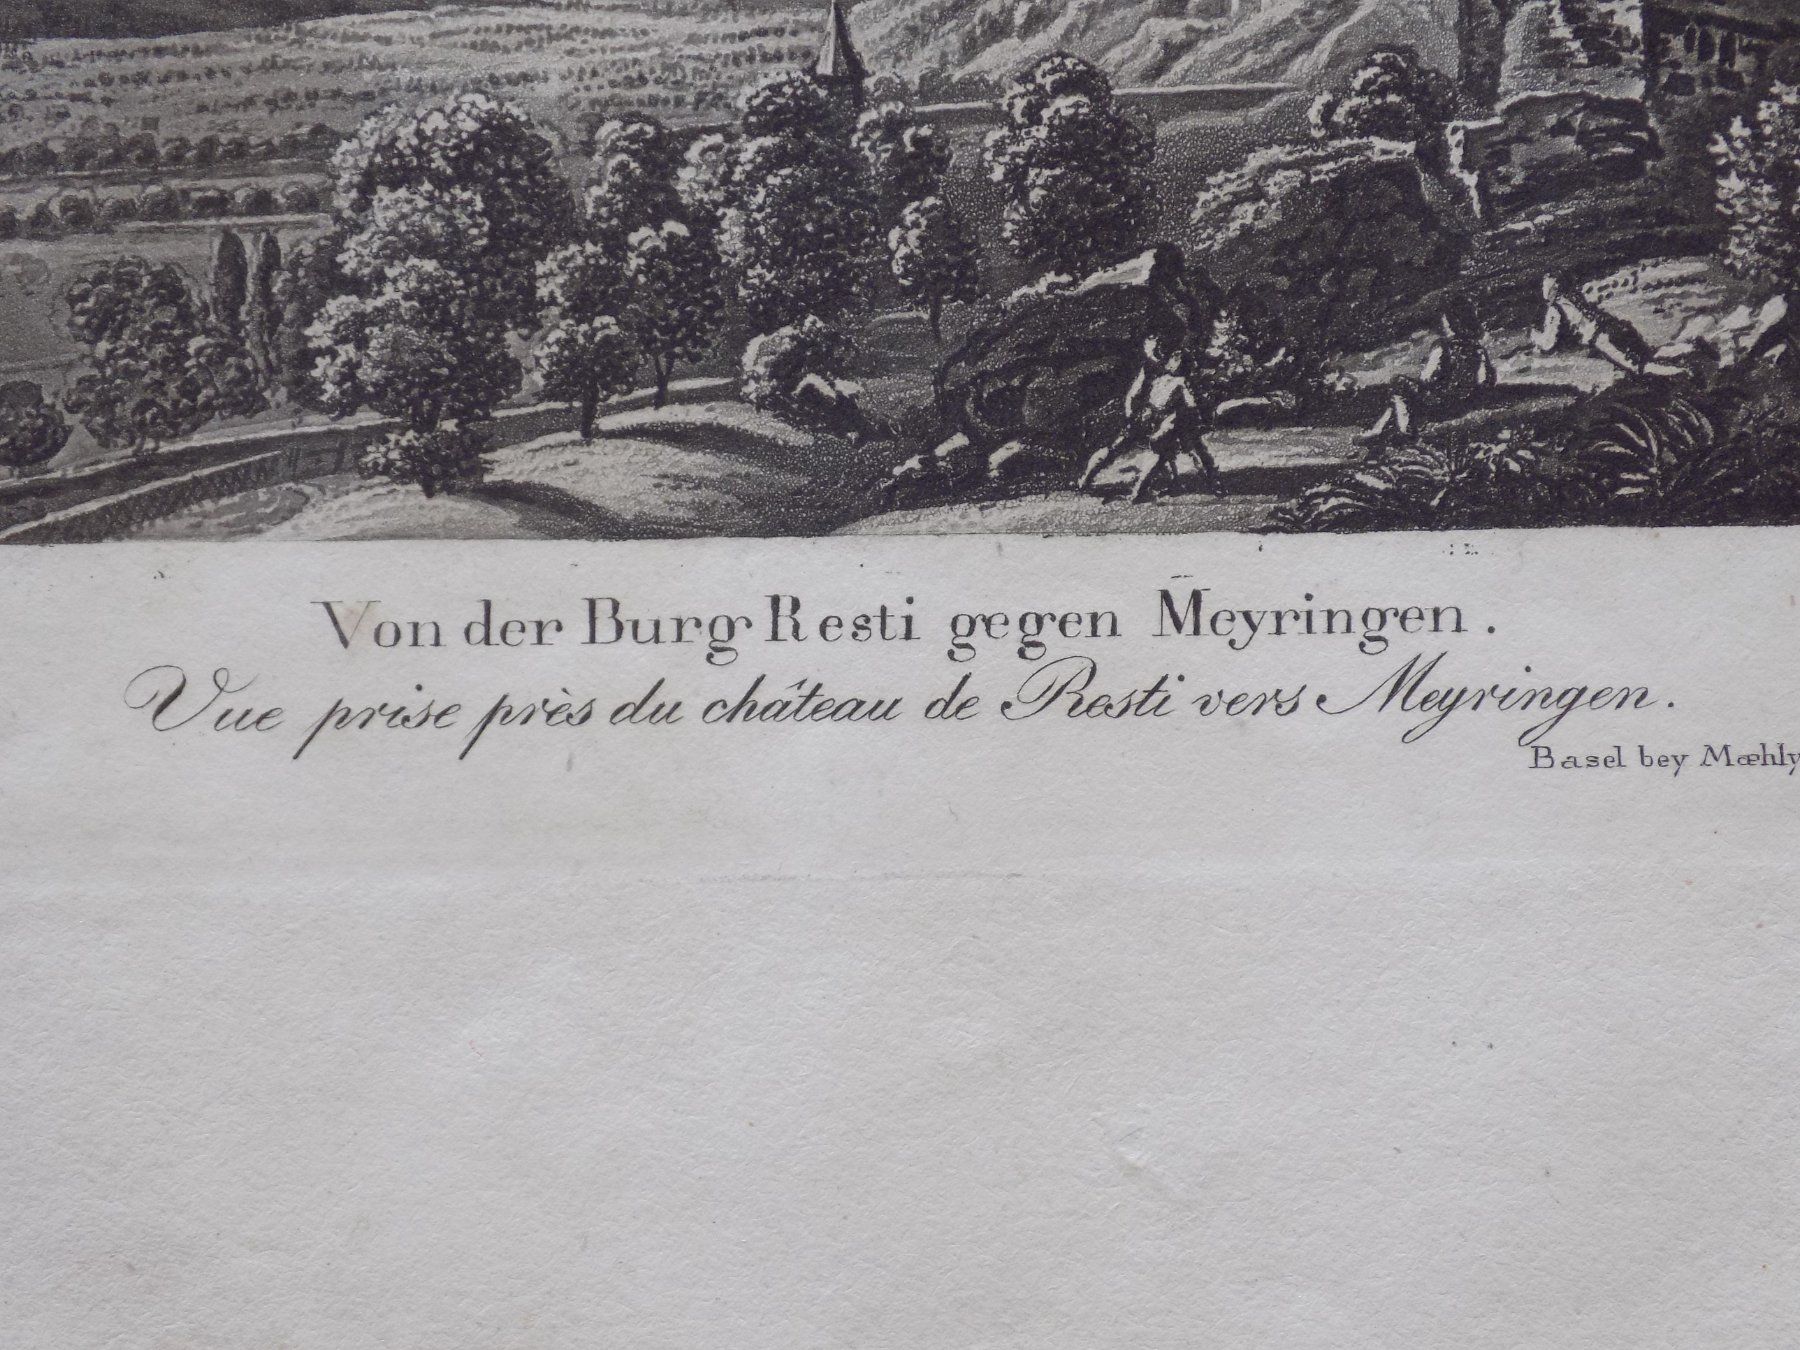 Von der Burg Resti gegen Meyringen.
Vue prise près du château de Resti vers Meyringen.
Basel bey Mæhly